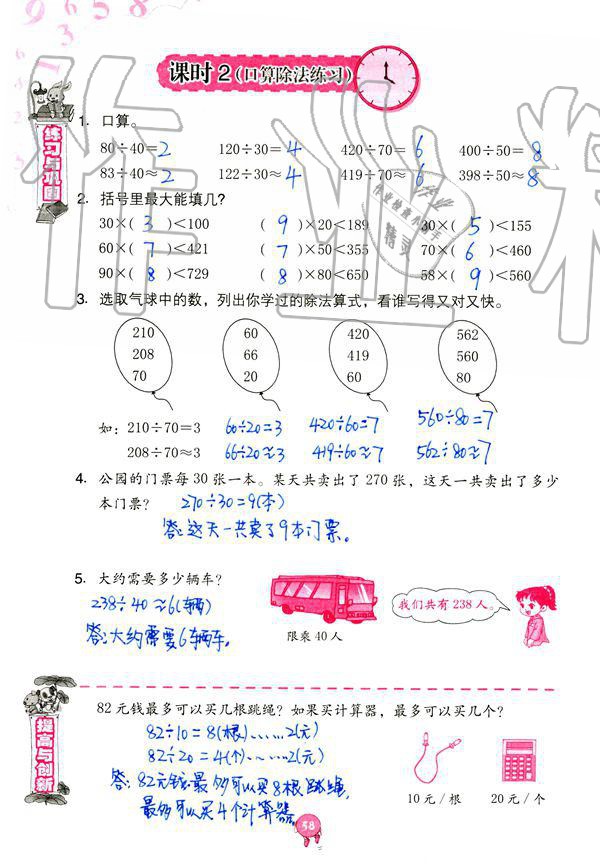 课时2(口算除法练习)
练习与巩固
1. 口算。
80÷40=2 120÷30=4 420÷70=6 400÷50=8
83÷40≈2 122÷30≈4 419÷70≈6 398÷50≈8
2. 括号里最大能填几?
30×( 3 )<100 ( 9 )×20<189 30×( 5 )<155
60×( 7 )<421 ( 7 )×50<355 70×( 6 )<460
90×( 8 )<729 ( 8 )×80<650 58×( 9 )<560
3. 选取气球中的数,列出你学过的除法算式,看谁写得又对又快。
210 60 420 562
208 66 419 560
70 20 60 80
如: 210÷70=3 60÷20=3 420÷60=7 560÷80=7
208÷70≈3 66÷20≈3 419÷60≈7 562÷80≈7
4. 公园的门票每 30 张一本。某天共卖出了 270 张,这天一共卖出了多少
本门票? 270÷30=9(本)
答:这天一共卖了9本门票。
5. 大约需要多少辆车?
238÷40≈6(辆)
答:大约需要6辆车。
限乘 40 人
我们共有 238 人。
提高与创新
82 元钱最多可以买几根跳绳?如果买计算器,最多可以买几个?
82÷10=8(根)……2(元)
82÷20=4(个)……2(元)
答:82元钱最多可以买8根跳绳,
最多可以买4个计算器。
10 元/根 20 元/个
38
作业精灵